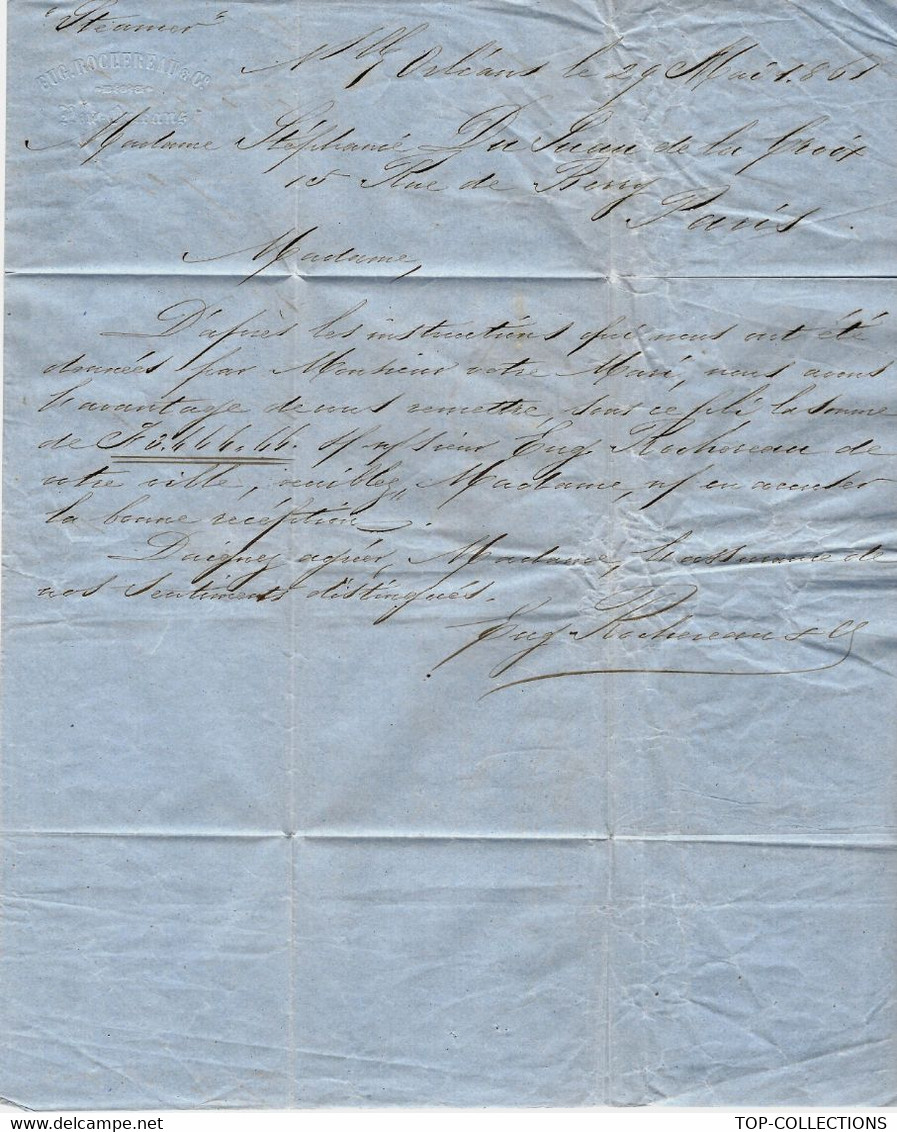 "Steamer"
EUG. ROCHEREAU & Co.
Nlle Orléans
Nlle Orléans le 29 Mai 1861
Madame Stéphanie Du Suau de la Croix
15 Rue de Berry
Paris
Madame,
D'après les instructions qui nous ont été
données par Monsieur votre Mari, nous avons
l'avantage de vous remettre, sous ce pli la somme
de s/ n/ sieur Eug Rochereau de
votre ville, veuillez, Madame, n/ en accuser
la bonne récéption.
Daignez agréer, Madame, l'assurance de
nos sentiments distingués.
Eug Rochereau & Co
TOP-COLLECTIONS